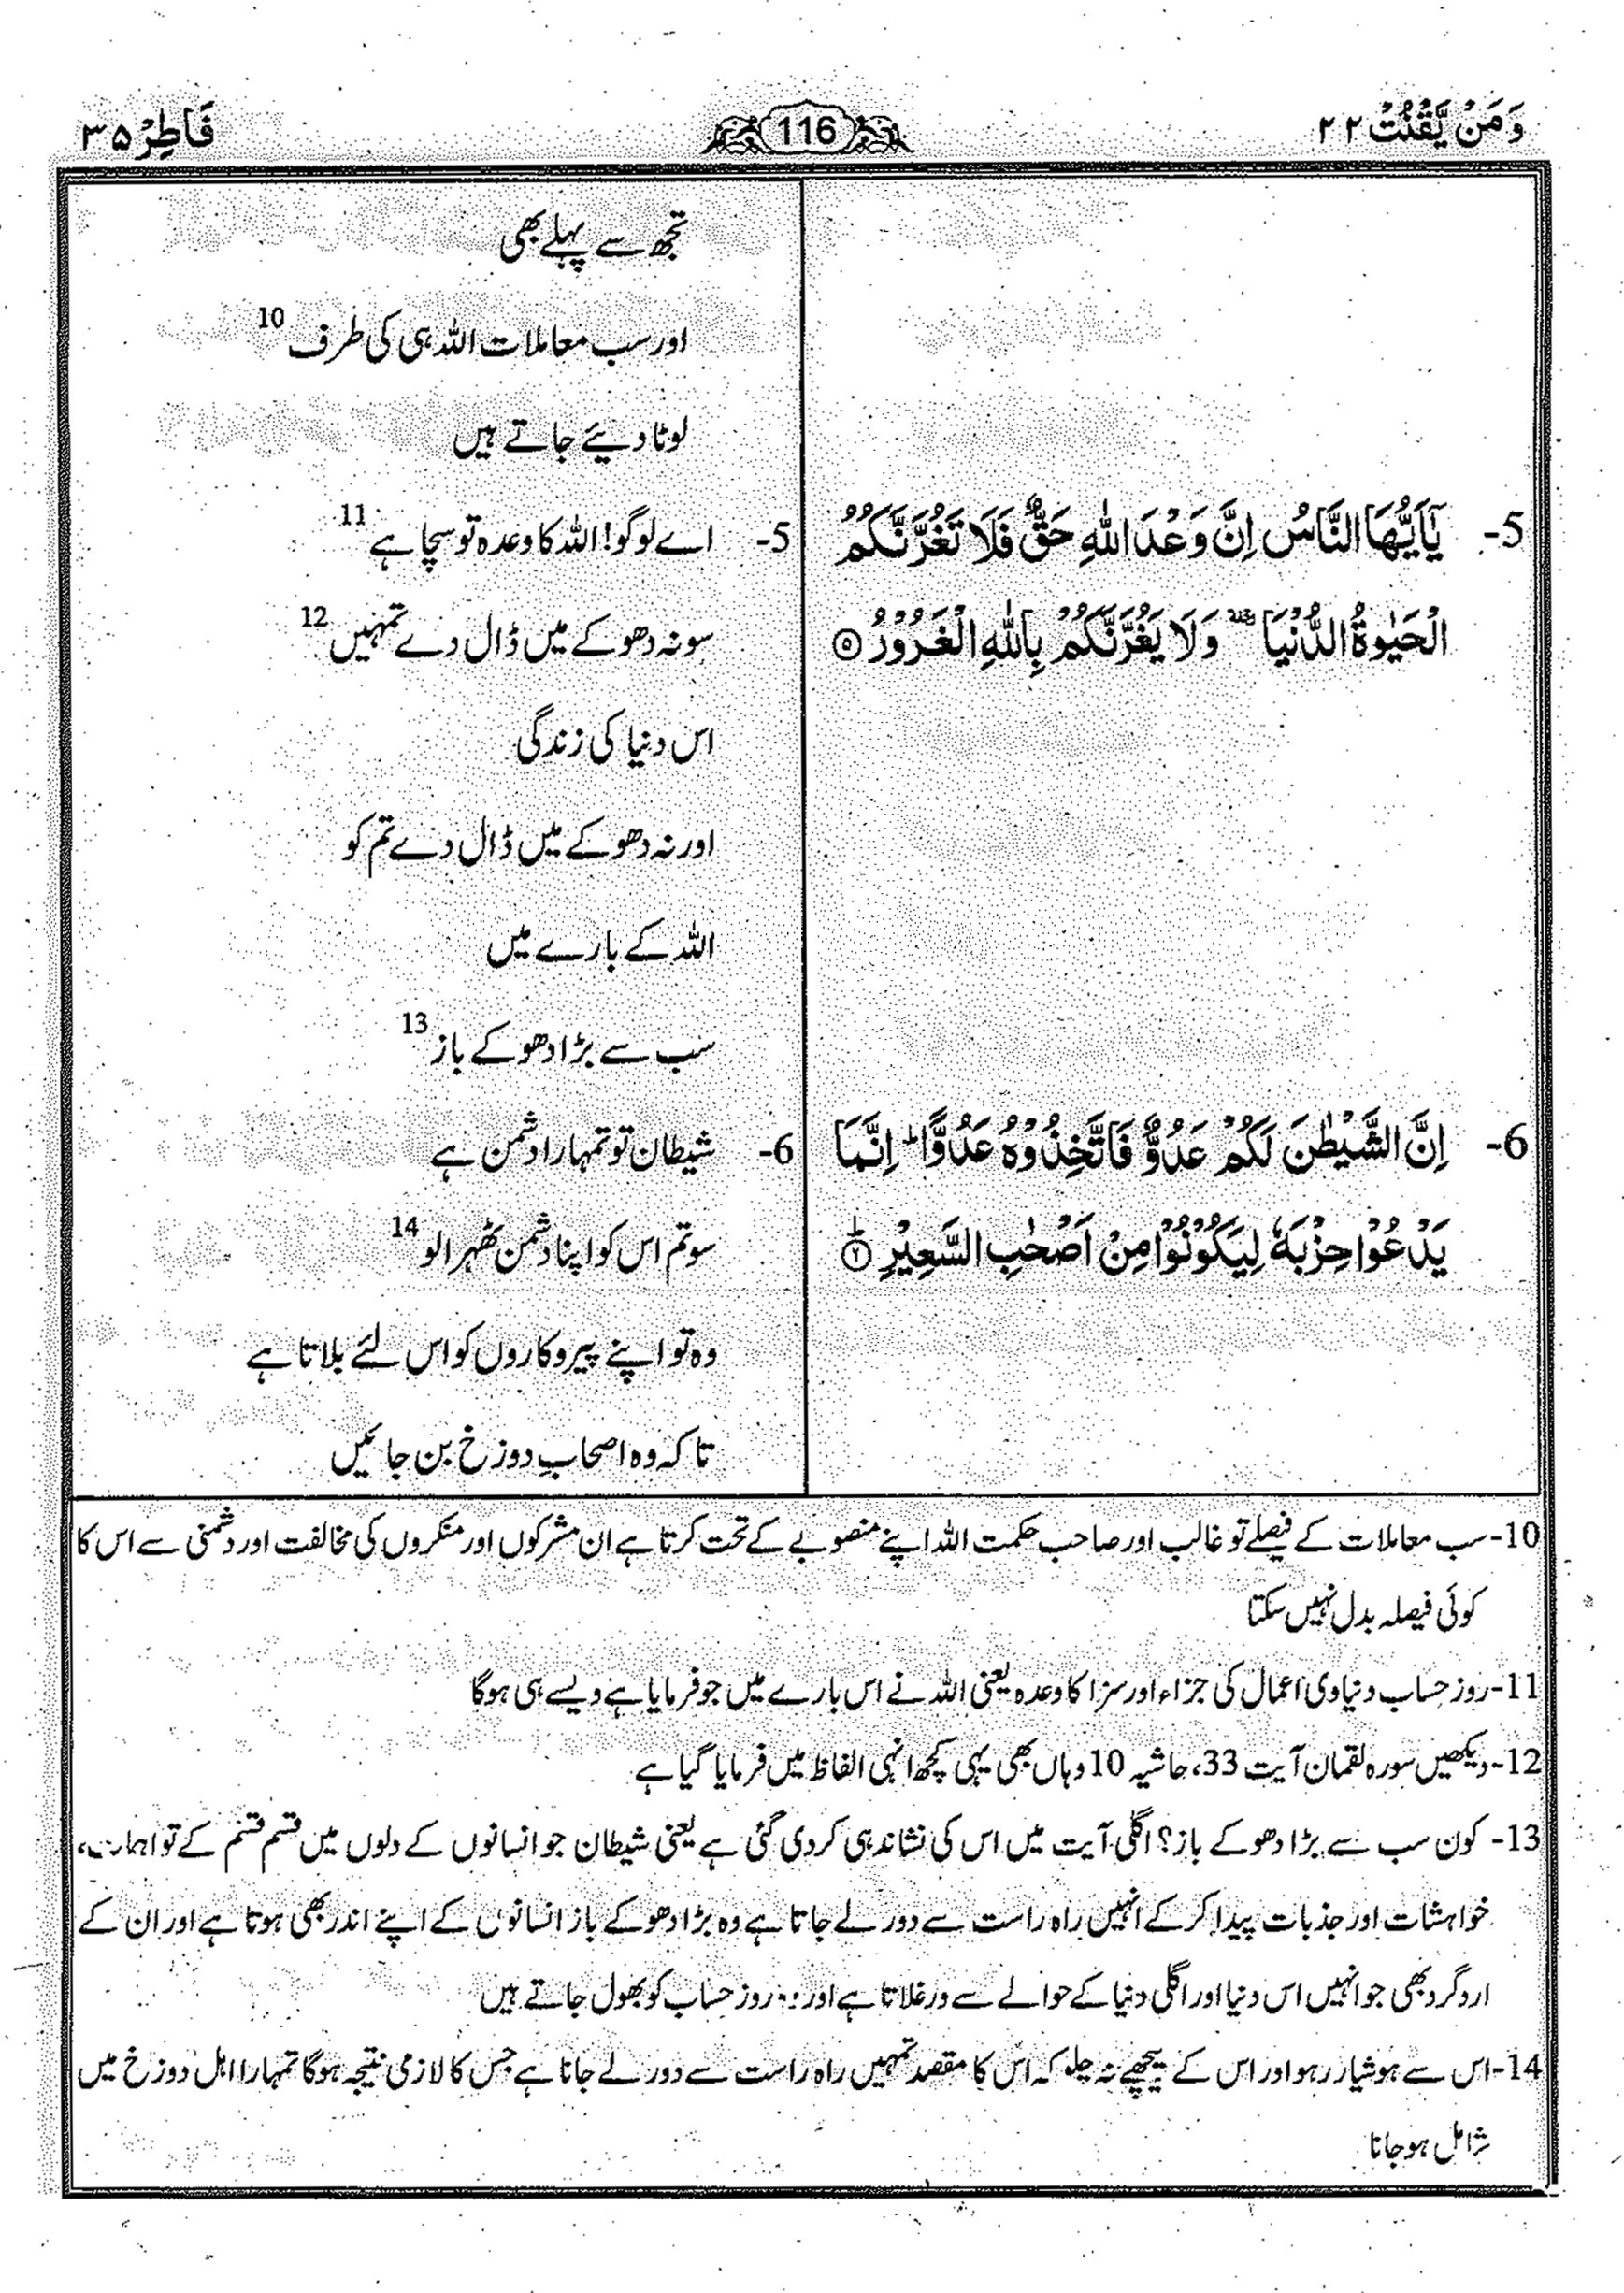 وَمَنْ يَّقْنُتْ ٢٢
116
فَاطِرْ ٣٥
تجھ سے پہلے بھی
اور سب معاملات اللہ ہی کی طرف 10
لوٹا دیئے جاتے ہیں
5- يٰۤاَيُّهَا النَّاسُ اِنَّ وَعْدَ اللّٰهِ حَقٌّ فَلَا تَغُرَّنَّكُمُ
الْحَيٰوةُ الدُّنْيَا ۥ وَلَا يَغُرَّنَّكُمْ بِاللّٰهِ الْغَرُوْرُ ۝۵
5- اے لوگو! اللہ کا وعدہ تو سچا ہے 11
سو نہ دھوکے میں ڈال دے تمہیں 12
اس دنیا کی زندگی
اور نہ دھوکے میں ڈال دے تم کو
اللہ کے بارے میں
سب سے بڑا دھوکے باز 13
6- اِنَّ الشَّيْطٰنَ لَكُمْ عَدُوٌّ فَاتَّخِذُوْهُ عَدُوًّا ؕ اِنَّمَا
يَدْعُوْا حِزْبَهٗ لِيَكُوْنُوْا مِنْ اَصْحٰبِ السَّعِيْرِ ؕ۝۶
6- شیطان تو تمہارا دشمن ہے
سو تم اس کو اپنا دشمن ٹھہرا لو 14
وہ تو اپنے پیروکاروں کو اس لئے بلاتا ہے
تاکہ وہ اصحابِ دوزخ بن جائیں
10- سب معاملات کے فیصلے تو غالب اور صاحب حکمت اللہ اپنے منصوبے کے تحت کرتا ہے ان مشرکوں اور منکروں کی مخالفت اور دشمنی سے اس کا
کوئی فیصلہ بدل نہیں سکتا
11- روز حساب دنیاوی اعمال کی جزاء اور سزا کا وعدہ یعنی اللہ نے اس بارے میں جو فرمایا ہے ویسے ہی ہوگا
12- دیکھیں سورہ لقمان آیت 33، حاشیہ 10 وہاں بھی یہی کچھ انہی الفاظ میں فرمایا گیا ہے
13- کون سب سے بڑا دھوکے باز؟ اگلی آیت میں اس کی نشاندہی کر دی گئی ہے یعنی شیطان جو انسانوں کے دلوں میں قسم قسم کے توہمات،
خواہشات اور جذبات پیدا کر کے انہیں راہ راست سے دور لے جاتا ہے وہ بڑا دھوکے باز انسانوں کے اپنے اندر بھی ہوتا ہے اور ان کے
اردگرد بھی جو انہیں اس دنیا اور اگلی دنیا کے حوالے سے ورغلاتا ہے اور وہ روز حساب کو بھول جاتے ہیں
14- اس سے ہوشیار رہو اور اس کے پیچھے نہ چلو کہ اس کا مقصد تمہیں راہ راست سے دور لے جانا ہے جس کا لازمی نتیجہ ہوگا تمہارا اہل دوزخ میں
شامل ہو جانا